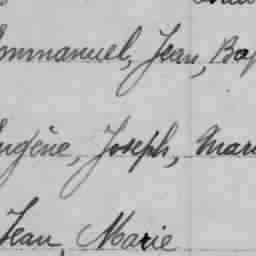 Emmanuel, Jean, Bap
Eugène, Joseph, Mari
Jean, Marie